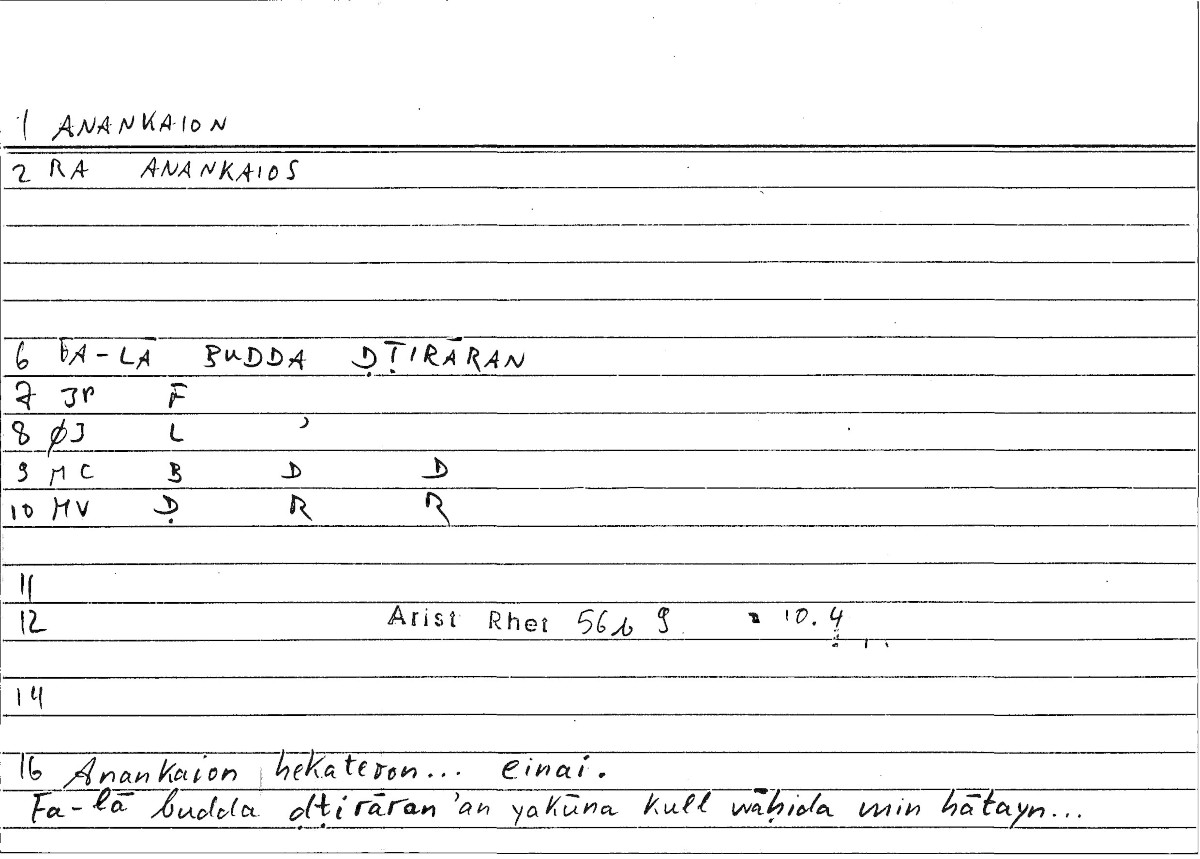 1 ANANKAION
2 RA ANANKAIOS
6 FA-LĀ BUDDA ḌṬIRĀRAN
7 JP F
8 ØJ L ʾ
9 MC B D D
10 MV Ḍ R R
11
12 Arist Rhet 56b 9 = 10.4
14
16 Anankaion hekateron... einai.
Fa-lā budda ḍṭirāran 'an yakūna kull wāḥida min hātayn...